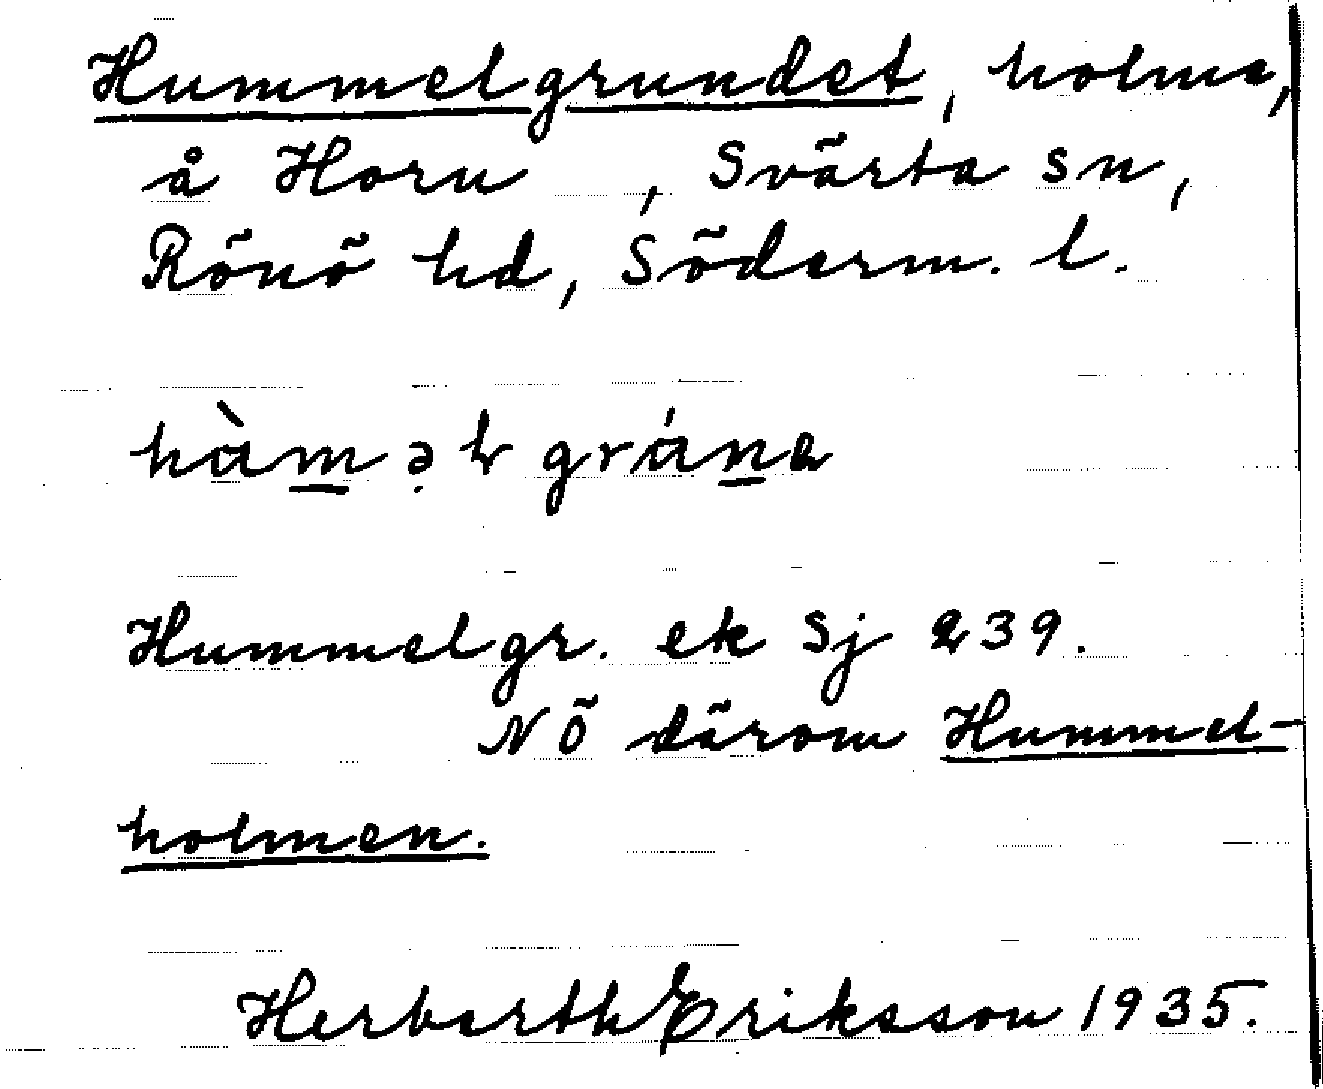 Hummelgrundet, holme,
å Horn , Svärta sn,
Rönö hd, Söderm. l.
hàməl grána
Hummelgr. ek Sj 239.
NÖ därom Hummel-
holmen.
Herbarth Eriksson 1935.